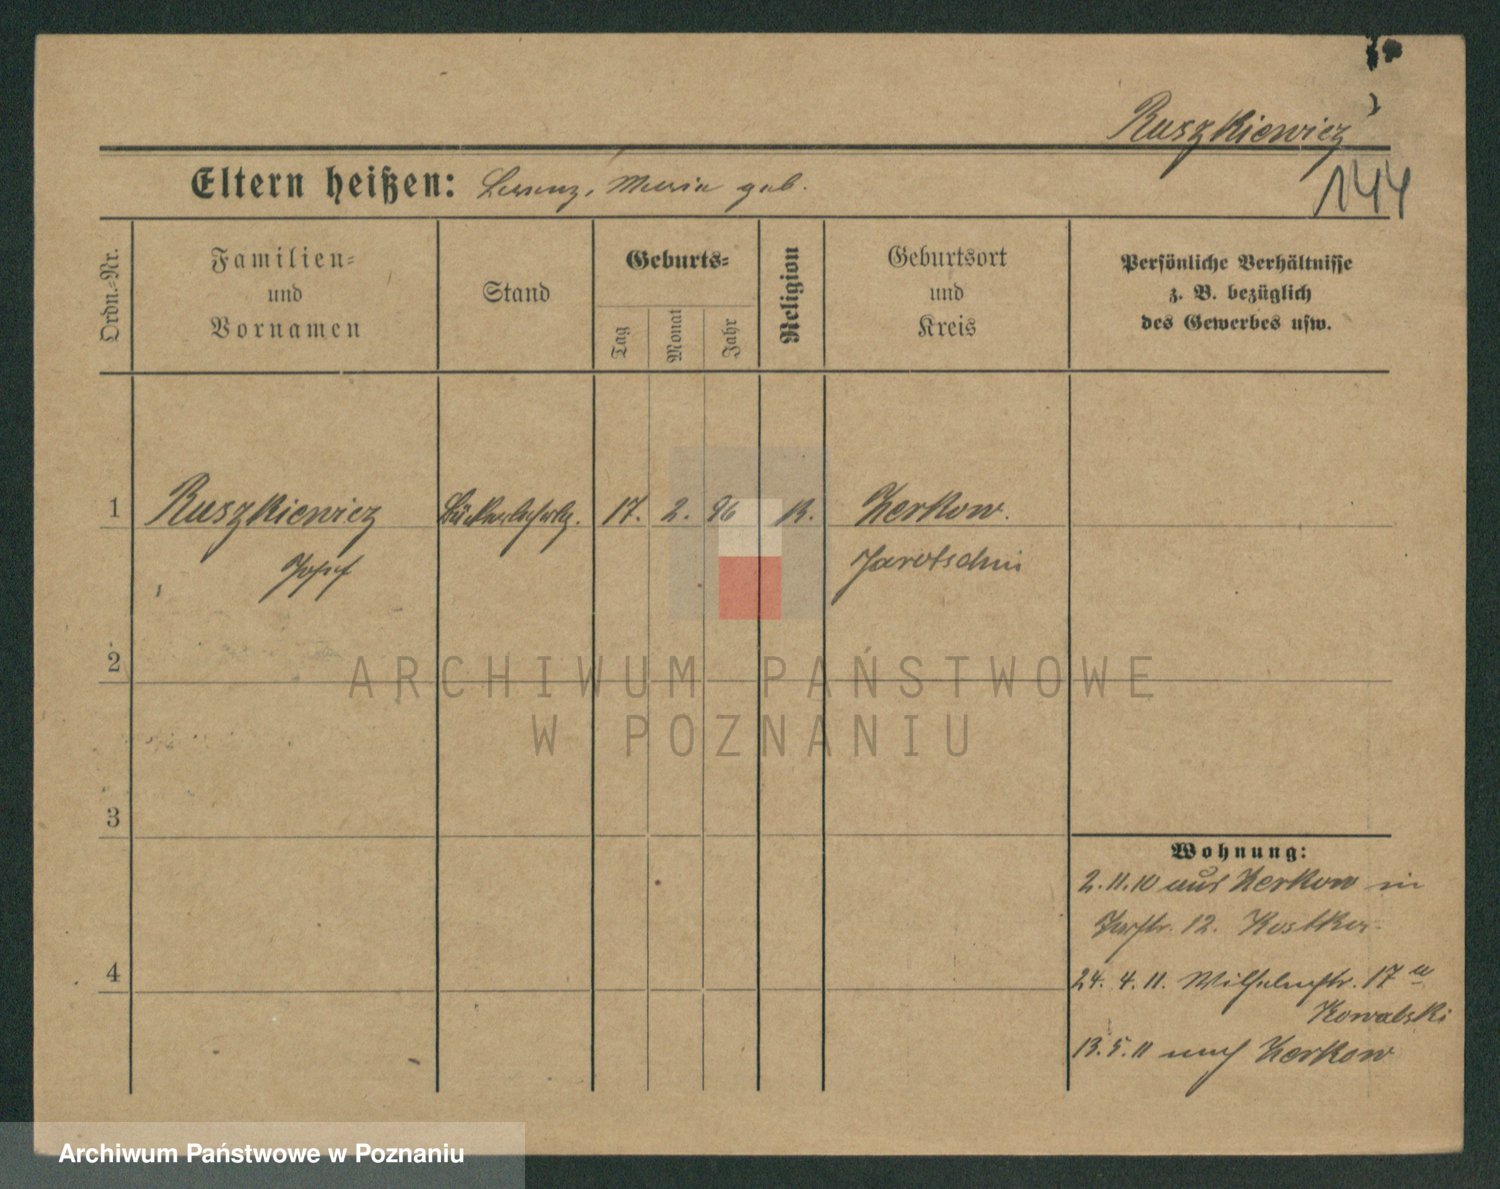 Ruszkiewicz
144
Eltern heißen: Lorenz, Maria geb.
Ordn.-Nr.
Familien-
und
Vornamen
Stand
Geburts-
Tag
Monat
Jahr
Religion
Geburtsort
und
Kreis
Persönliche Verhältnisse
z. B. bezüglich
des Gewerbes usw.
1 Ruszkiewicz 17. 2. 96 Zerkow.
Josef Jarotschin
2
3
4
Wohnung:
2.11.10 aus Zerkow in
12.
24. 4. 11. Wilhelmstr. 17
Kowalski
13.5.11 nach Zerkow
ARCHIWUM PAŃSTWOWE
W POZNANIU
Archiwum Państwowe w Poznaniu